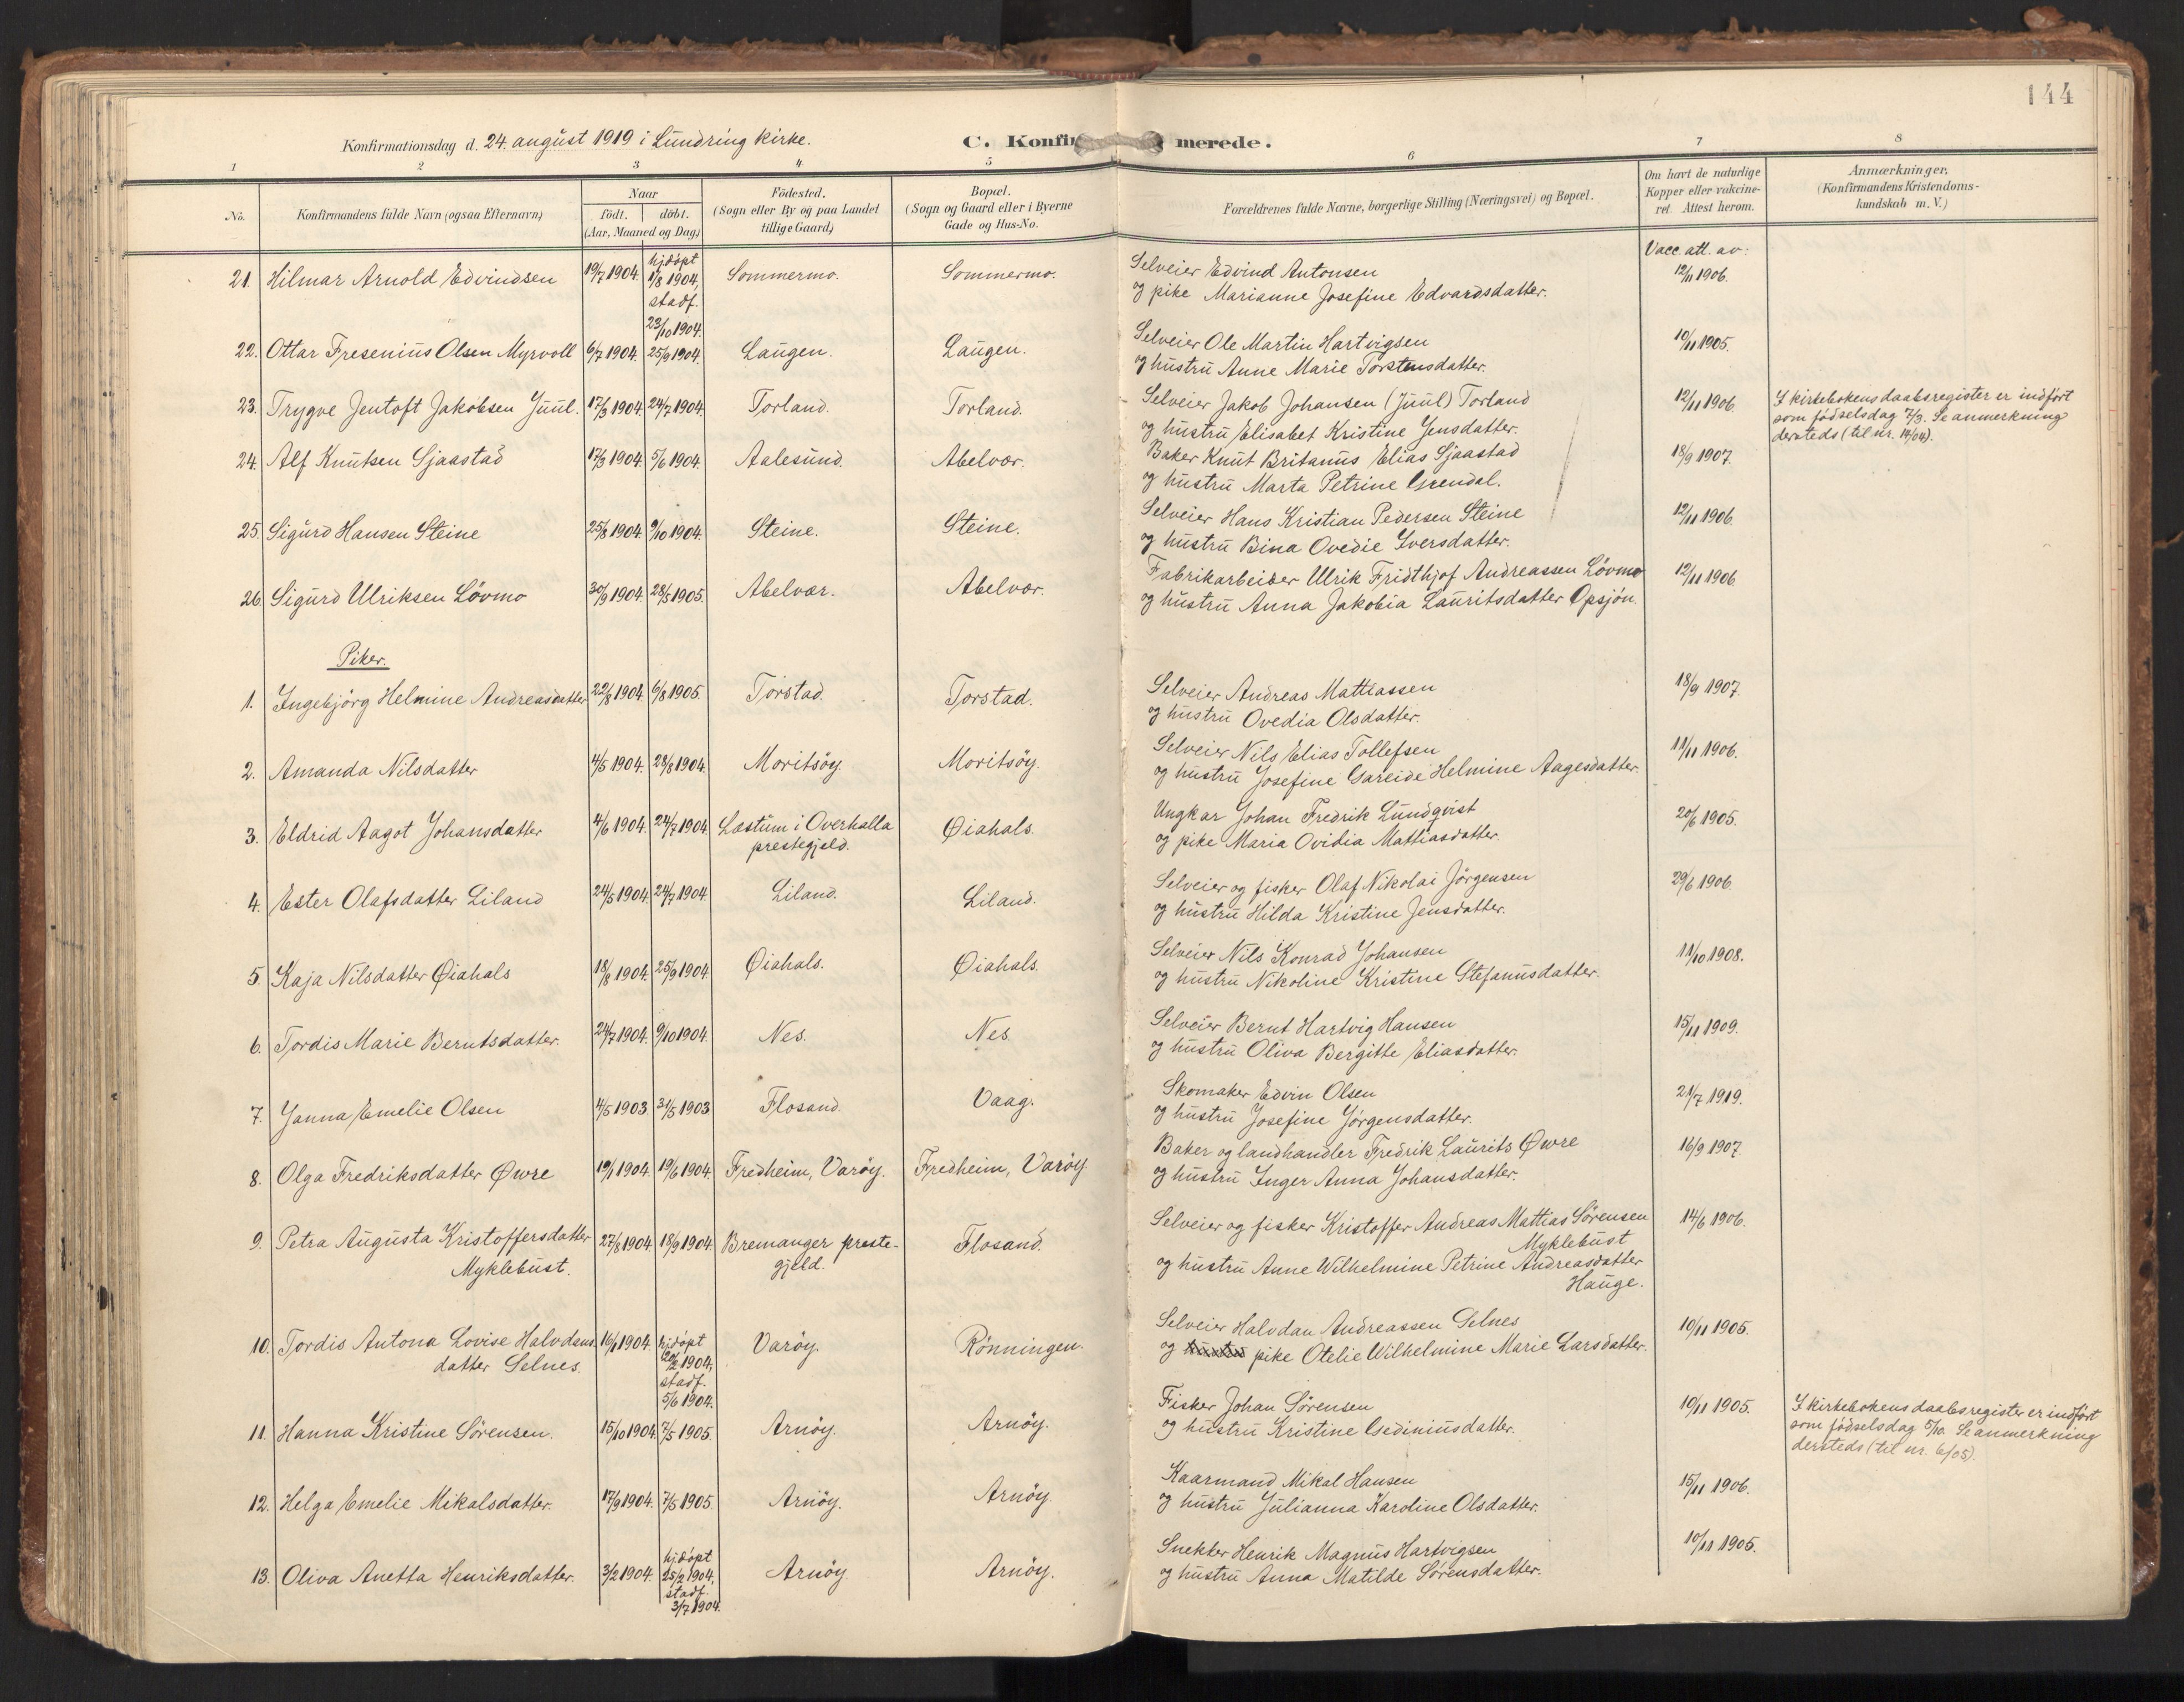 144
Konfirmationsdag d. 24. august 1919 i Lundring kirke.
C. Konfir merede.
1 2 3 4 5 6 7 8
No.
Konfirmandens fulde Navn (ogsaa Efternavn)
Naar
födt. döbt.
(Aar, Maaned og Dag)
Födested.
(Sogn eller By og paa Landet
tillige Gaard)
Bopæl.
(Sogn og Gaard eller i Byerne
Gade og Hus-No.
Forældrenes fulde Navne, borgerlige Stilling (Næringsvei) og Bopæl.
Om havt de naturlige
Kopper eller vakcine-
ret. Attest herom.
Anmærkninger,
(Konfirmandens Kristendoms-
kundskab m. V.)
Vacc. att. av:
21. Hilmar Arnold Edvindsen 19/7 1904. hjdøpt 1/8 1904, stadf. 23/10 1904. Sommermo. Sommermo. Selveier Edvind Antonsen 12/11 1906.
og pike Marianne Josefine Edvardsdatter.
22. Ottar Fresenius Olsen Myrvoll 6/7 1904. 25/9 1904. Laugen. Laugen. Selveier Ole Martin Hartvigsen 10/11 1905.
og hustru Anne Marie Torstensdatter.
23. Trygve Jentoft Jakobsen Juul. 17/3 1904. 24/7 1904. Torland. Torland. Selveier Jakob Johansen (Juul) Torland 12/11 1906.
og hustru Elisabet Kristine Jensdatter.
I kirkebokens daabsregister er indført
som fødselsdag 7/3. Se anmerkning
dersteds (til nr. 14/04).
24. Alf Knutsen Sjaastad 17/3 1904 5/6 1904. Aalesund. Abelvær. Baker Knut Britanus Elias Sjaastad 18/9 1907.
og hustru Marta Petrine Grendal.
25. Sigurd Hansen Steine 25/8 1904. 9/10 1904. Steine. Steine. Selveier Hans Kristian Pedersen Steine 12/11 1906.
og hustru Bina Ovedie Iversdatter.
26. Sigurd Ulriksen Lövmo 30/9 1904. 28/5 1905. Abelvær. Abelvær. Fabrikarbeider Ulrik Fridthjof Andreassen Lövmo 12/11 1906
og hustru Anna Jakobia Lauritsdatter Opsjön.
Piker.
1. Ingebjörg Helmine Andreasdatter 22/8 1904. 6/8 1905. Torstad. Torstad. Selveier Andreas Mattiassen 18/9 1907.
og hustru Ovedia Olsdatter.
2. Amanda Nilsdatter 4/5 1904. 28/8 1904. Moritsöy. Moritsöy. Selveier Nils Elias Tollefsen 11/11 1906.
og hustru Josefine Helmine Aagesdatter.
3. Eldrid Aagot Johansdatter 4/6 1904. 24/7 1904 Læstum i Overhalla prestegjeld. Øiahals. Ungkar Johan Fredrik Lundqvist 20/6 1905.
og pike Maria Ovidia Mattiasdatter.
4. Ester Olafsdatter Liland 24/5 1904 24/7 1904. Liland. Liland. Selveier og fisker Olaf Nikolai Jörgensen 29/6 1906.
og hustru Hilda Kristine Jensdatter.
5. Kaja Nilsdatter Øiahals 18/8 1904. 25/9 1904. Øiahals. Øiahals. Selveier Nils Konrad Johansen 11/10 1908.
og hustru Nikoline Kristine Stefanusdatter.
6. Tordis Marie Berntsdatter. 24/7 1904. 9/10 1904. Nes. Nes. Selveier Bernt Hartvig Hansen 15/11 1909.
og hustru Oliva Bergitte Eliasdatter.
7. Janna Emelie Olsen 4/5 1903 31/5 1903 Flosand. Vaag. Skomaker Edvin Olsen 21/7 1919.
og hustru Josefine Jörgensdatter.
8. Olga Fredriksdatter Øwre 19/1 1904. 19/6 1904. Fredheim, Varöy. Fredheim, Varöy. Baker og landhandler Fredrik Laurits Øwre 16/9 1907.
og hustru Inger Anna Johansdatter.
9. Petra Augusta Kristoffersdatter Myklebust. 27/8 1904. 18/9 1904. Bremanger preste-gjeld. Flosand. Selveier og fisker Kristoffer Andreas Mattias Sörensen Myklebust 14/6 1906.
og hustru Anne Wilhelmine Petrine Andreasdatter Hauge.
10. Tordis Antona Lovise Halvdans datter Selnes. 16/1 1904. hjdöpt 20/2 1904, stadf. 5/6 1904. Varöy. Rönningen. Selveier Halvdan Andreassen Selnes 10/11 1905.
og pike Otelie Wilhelmine Marie Larsdatter.
11. Hanna Kristine Sörensen. 15/10 1904. 7/5 1905. Arnöy. Arnöy. Fisker Johan Sörensen 10/11 1905.
og hustru Kristine Esediniusdatter.
I kirkebokens daabsregister er indført
som fødselsdag 5/10. Se anmerkning
dersteds (til nr. 6/05).
12. Helga Emelie Mikalsdatter. 17/9 1904. 7/5 1905. Arnöy. Arnöy. Kaarmand Mikal Hansen 15/11 1906.
og hustru Julianna Karoline Olsdatter.
13. Oliva Anetta Henriksdatter. 3/2 1904. hjdöpt 25/2 1904, stadf. 3/7 1904. Arnöy. Arnöy. Snekker Henrik Magnus Hartvigsen 10/11 1905.
og hustru Anna Matilde Sörensdatter.